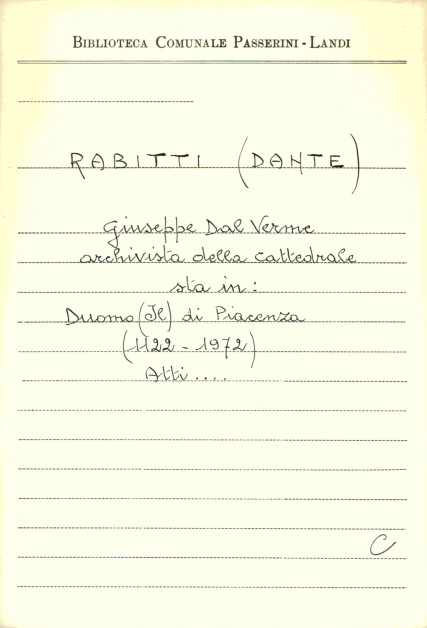 BIBLIOTECA COMUNALE PASSERINI - LANDI
RABITTI (DANTE)
Giuseppe Dal Verme
archivista della cattedrale
sta in:
Duomo (Il) di Piacenza
(1122 - 1972)
Atti....
C